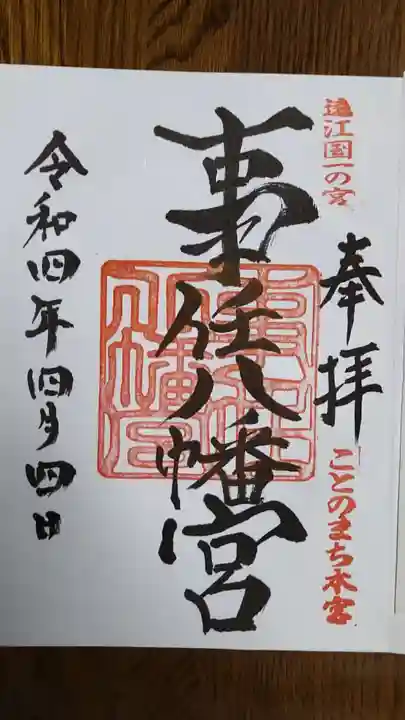 遠江国一の宮
奉拝
ことのまち本宮
事任八幡宮
令和四年四月四日